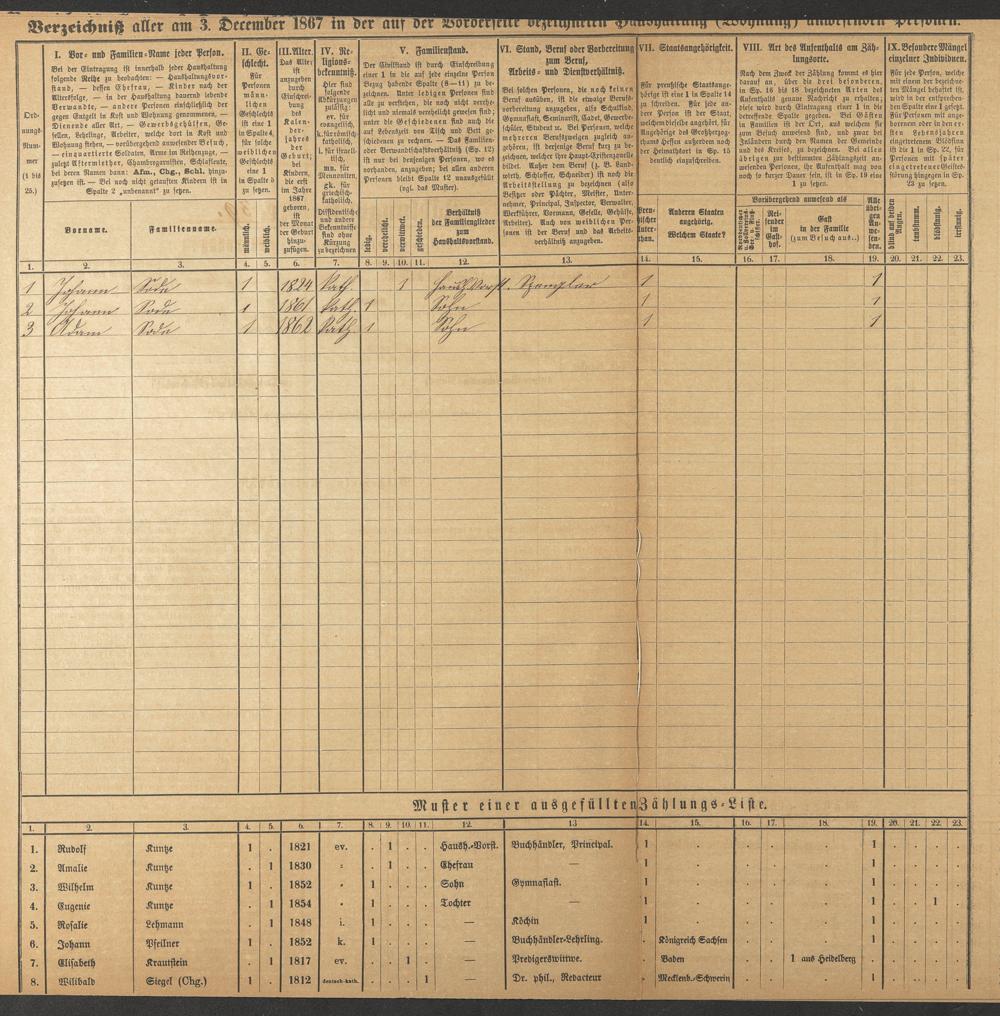 Verzeichniß aller am 3. December 1867 in der auf der Vorderseite bezeichneten Haushaltung (Wohnung) anwesenden Personen.
Ordnungs-Nummer (1 bis 25.)
I. Vor- und Familien-Name jeder Person.
Bei der Eintragung ist innerhalb jeder Haushaltung
folgende Reihe zu beobachten: — Haushaltungsvor-
stand, — dessen Ehefrau, — Kinder nach der
Altersfolge, — in der Haushaltung dauernd lebende
Verwandte, — andere Personen einschließlich der
gegen Entgelt in Kost und Wohnung genommenen, —
Dienende aller Art, — Gewerbsgehülfen, Ge-
sellen, Lehrlinge, Arbeiter, welche dort in Kost und
Wohnung stehen, — vorübergehend anwesender Besuch,
— einquartierte Soldaten, Arme im Reihenzuge, —
zuletzt Aftermiether, Chambregarnisten, Schlafleute,
bei deren Namen dann: Afm., Chg., Schl. hinzu-
zusetzen ist. — Bei noch nicht getauften Kindern ist in
Spalte 2 „unbenannt" zu setzen.
Vorname. Familienname.
II. Ge-
schlecht.
Für
Personen
männ-
lichen
Geschlechts
ist eine 1
in Spalte 4,
für solche
weiblichen
Geschlechts
eine 1
in Spalte 5
zu setzen.
männlich. weiblich.
III. Alter.
Das Alter
ist
anzugeben
durch
Einschrei-
bung
des
Kalen-
der-
jahres
der
Geburt;
bei
Kindern,
die erst
im Jahre
1867
geboren,
ist
der Monat
der Geburt
hinzu-
zufügen.
IV. Re-
ligions-
bekenntniß.
Hier sind
folgende
Abkürzungen
zulässig:
ev. für
evangelisch,
k. für römisch-
katholisch,
i. für israeli-
tisch,
mn. für
Mennoniten,
gk. für
griechisch-
katholisch.
Dissidentische
und andere
Bekenntnisse
sind ohne
Kürzung
zu bezeichnen
V. Familienstand.
Der Civilstand ist durch Einschreibung
einer 1 in die auf jede einzelne Person
Bezug habende Spalte (8—11) zu be-
zeichnen. Unter ledigen Personen sind
alle zu verstehen, die noch nicht verehe-
licht und niemals verehelicht gewesen sind;
unter die Geschiedenen sind auch die
auf Lebenszeit von Tisch und Bett ge-
schiedenen zu rechnen. — Das Familien-
oder Verwandtschaftsverhältniß (Sp. 12)
ist nur bei denjenigen Personen, wo es
vorhanden, anzugeben; bei allen anderen
Personen bleibt Spalte 12 unausgefüllt
(vgl. das Muster).
ledig. verehelicht. verwittwet. geschieden.
Verhältniß
der Familienglieder
zum
Haushaltsvorstand.
VI. Stand, Beruf oder Vorbereitung
zum Beruf,
Arbeits- und Dienstverhältniß.
Bei solchen Personen, die noch keinen
Beruf ausüben, ist die etwaige Berufs-
vorbereitung anzugeben, also Schulkind,
Gymnasiast, Seminarist, Cadet, Gewerbe-
schüler, Student ꝛc. Bei Personen, welche
mehreren Berufszweigen zugleich an-
gehören, ist derjenige Beruf kurz zu be-
zeichnen, welcher ihre Haupt-Existenzquelle
bildet. Außer dem Beruf (z. B. Land-
wirth, Schlosser, Schneider) ist noch die
Arbeitsstellung zu bezeichnen (also
Besitzer oder Pächter, Meister, Unter-
nehmer, Principal, Inspector, Verwalter,
Werkführer, Vormann, Geselle, Gehülfe,
Arbeiter). Auch von weiblichen Per-
sonen ist der Beruf und das Arbeits-
verhältniß anzugeben.
VII. Staatsangehörigkeit.
Für preußische Staatsange-
hörige ist eine 1 in Spalte 14
zu schreiben. Für jede an-
dere Person ist der Staat,
welchem dieselbe angehört, für
Angehörige des Großherzog-
thums Hessen außerdem noch
der Heimathsort in Sp. 15
deutlich einzuschreiben.
Preu-
ßischer
Unter-
than.
Anderen Staaten
angehörig.
Welchem Staate?
VIII. Art des Aufenthalts am Zäh-
lungsorte.
Nach dem Zweck der Zählung kommt es hier
darauf an, über die drei besonderen,
in Sp. 16 bis 18 bezeichneten Arten des
Aufenthalts genaue Nachricht zu erhalten;
diese wird durch Eintragung einer 1 in die
betreffende Spalte gegeben. Bei Gästen
in Familien ist der Ort, aus welchem sie
zum Besuch anwesend sind, und zwar bei
Inländern durch den Namen der Gemeinde
und des Kreises, zu bezeichnen. Bei allen
übrigen zur bestimmten Zählungszeit an-
wesenden Personen, ihr Aufenthalt mag von
noch so kurzer Dauer sein, ist in Sp. 19 eine
1 zu setzen.
Vorübergehend anwesend als
Rei-
sender
im
Gast-
hof.
Gast
in der Familie
(zum Besuch aus..)
Alle
übri-
gen
An-
we-
sen-
den.
IX. Besondere Mängel
einzelner Individuen.
Für jede Person, welche
mit einem der bezeichne-
ten Mängel behaftet ist,
wird in der entsprechen-
den Spalte eine 1 gesetzt.
Für Personen mit ange-
borenem oder in den er-
sten Lebensjahren
eingetretenem Blödsinn
ist die 1 in Sp. 22, für
Personen mit später
eingetretener Geistes-
störung hingegen in Sp.
23 zu setzen.
blind auf beiden Augen. taubstumm. blödsinnig. irrsinnig.
1. 2. 3. 4. 5. 6. 7. 8. 9. 10. 11. 12. 13. 14. 15. 16. 17. 18. 19. 20. 21. 22. 23.
1 Johann Sode 1 1824 kath. 1 Haush.Vorst. Spengler 1 1
2 Johann Sode 1 1861 kath. 1 Sohn 1 1
3 Adam Sode 1 1862 kath. 1 Sohn 1 1
Muster einer ausgefüllten Zählungs-Liste.
1. 2. 3. 4. 5. 6. 7. 8. 9. 10. 11. 12. 13 14. 15. 16. 17. 18. 19. 20. 21. 22. 23.
1. Rudolf Kuntze 1 . 1821 ev. . 1 . . Haush.-Vorst. Buchhändler, Principal. 1 . . . . 1 . . . .
2. Amalie Kuntze . 1 1830 = . 1 . . Ehefrau — 1 . . . . 1 . . . .
3. Wilhelm Kuntze 1 . 1852 = 1 . . . Sohn Gymnasiast. 1 . . . . 1 . . . .
4. Eugenie Kuntze . 1 1854 = 1 . . . Tochter — 1 . . . . 1 . . 1 .
5. Rosalie Lehmann . 1 1848 i. 1 . . . — Köchin 1 . . . . 1 . . . .
6. Johann Pfeilner 1 . 1852 k. 1 . . . — Buchhändler-Lehrling. . Königreich Sachsen . . . 1 . . . .
7. Elisabeth Krautstein . 1 1817 ev. . . 1 . — Predigerswittwe. . Baden . . 1 aus Heidelberg . . . . .
8. Wilibald Siegel (Chg.) 1 . 1812 deutsch-kath. . . . 1 — Dr. phil., Redacteur . Mecklenb.-Schwerin . . . 1 . . . .